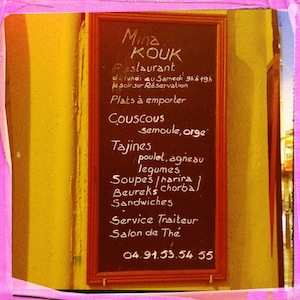 Mina
KOUK
Restaurant
du lundi au Samedi 9h à 19h
le soir sur Réservation
Plats à emporter
Couscous
semoule, orge
Tajines
poulet, agneau
legumes
Soupes / harira
Beureks chorba /
Sandwiches
Service Traiteur
Salon de Thé
04.91.53.54 55